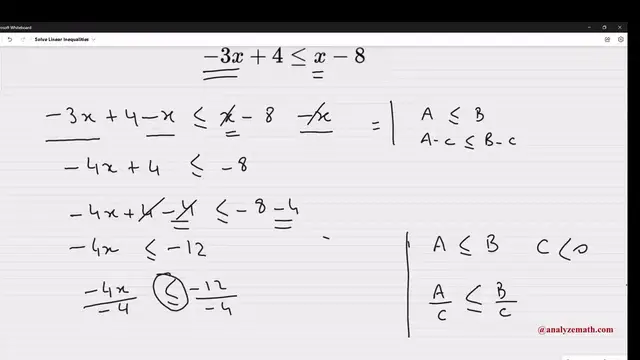 Microsoft Whiteboard
Solve Linear Inequalities
-3x + 4 ≤ x - 8
-3x + 4 - x ≤ x - 8 - x = A ≤ B
A - C ≤ B - C
-4x + 4 ≤ -8
-4x + 4 - 4 ≤ -8 - 4
-4x ≤ -12
A ≤ B C < 0
-4x/-4 ≤ -12/-4
A/C ≤ B/C
@analyzemath.com